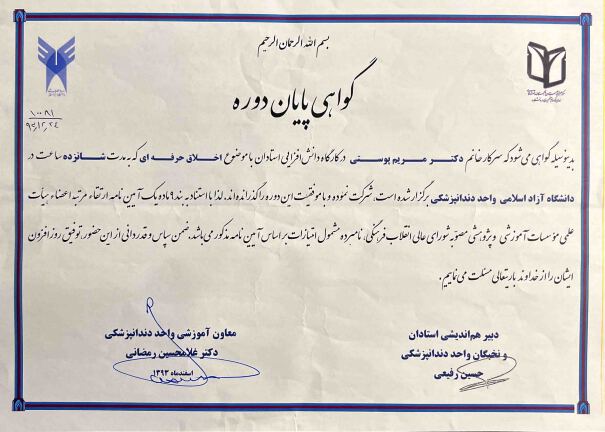 بسم الله الرحمان الرحیم
گواهی پایان دوره
۱۰۰۸۱
۹۳,۱۲,۲۴
بدینوسیله گواهی می شود که سرکار خانم دکتر مریم پوستی در کارگاه دانش افزایی استادان با موضوع اخلاق حرفه ای که به مدت شانزده ساعت در
دانشگاه آزاد اسلامی واحد دندانپزشکی برگزار شده است، شرکت نموده و با موفقیت این دوره را گذرانده اند، لذا با استناد به بند ۹ ماده یک آیین نامه ارتقاء مرتبه اعضاء هیأت
علمی مؤسسات آموزشی و پژوهشی مصوبه شورای عالی انقلاب فرهنگی، نامبرده مشمول امتیازات بر اساس آیین نامه مذکور می باشد. ضمن سپاس و قدردانی از این حضور، توفیق روز افزون
ایشان را از خداوند باریتعالی مسئلت می نماییم.
دبیر هم اندیشی استادان
و نخبگان واحد دندانپزشکی
حسین رفیعی
معاون آموزشی واحد دندانپزشکی
دکتر غلامحسین رمضانی
اسفندماه ۱۳۹۳